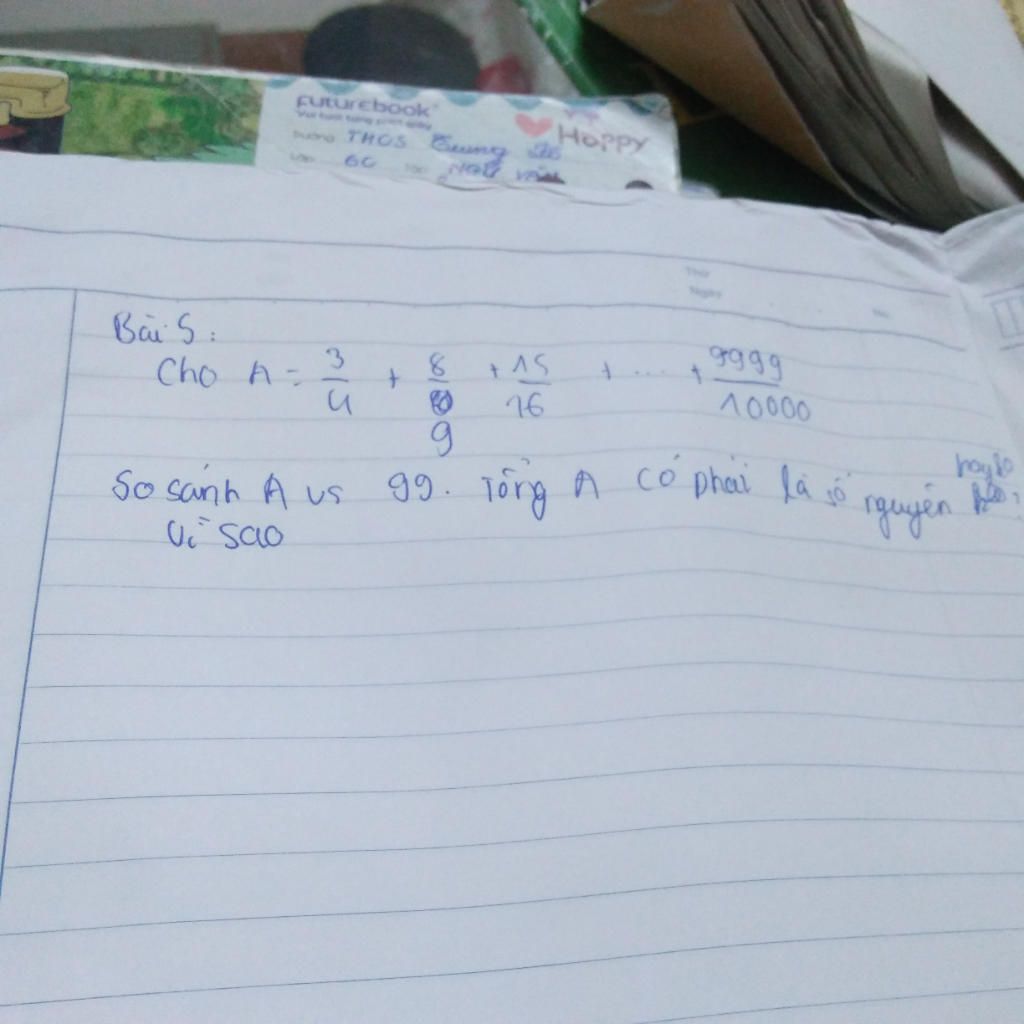 FUTUREBOOK
Happy
Trường THCS Trung
Lớp 6C
Thứ
Ngày
Bài 5:
Cho A = 3/4 + 8/9 + 15/16 + ... + 9999/10000
So sánh A vs 99. Tổng A có phải là số nguyên hay ko
Vì sao